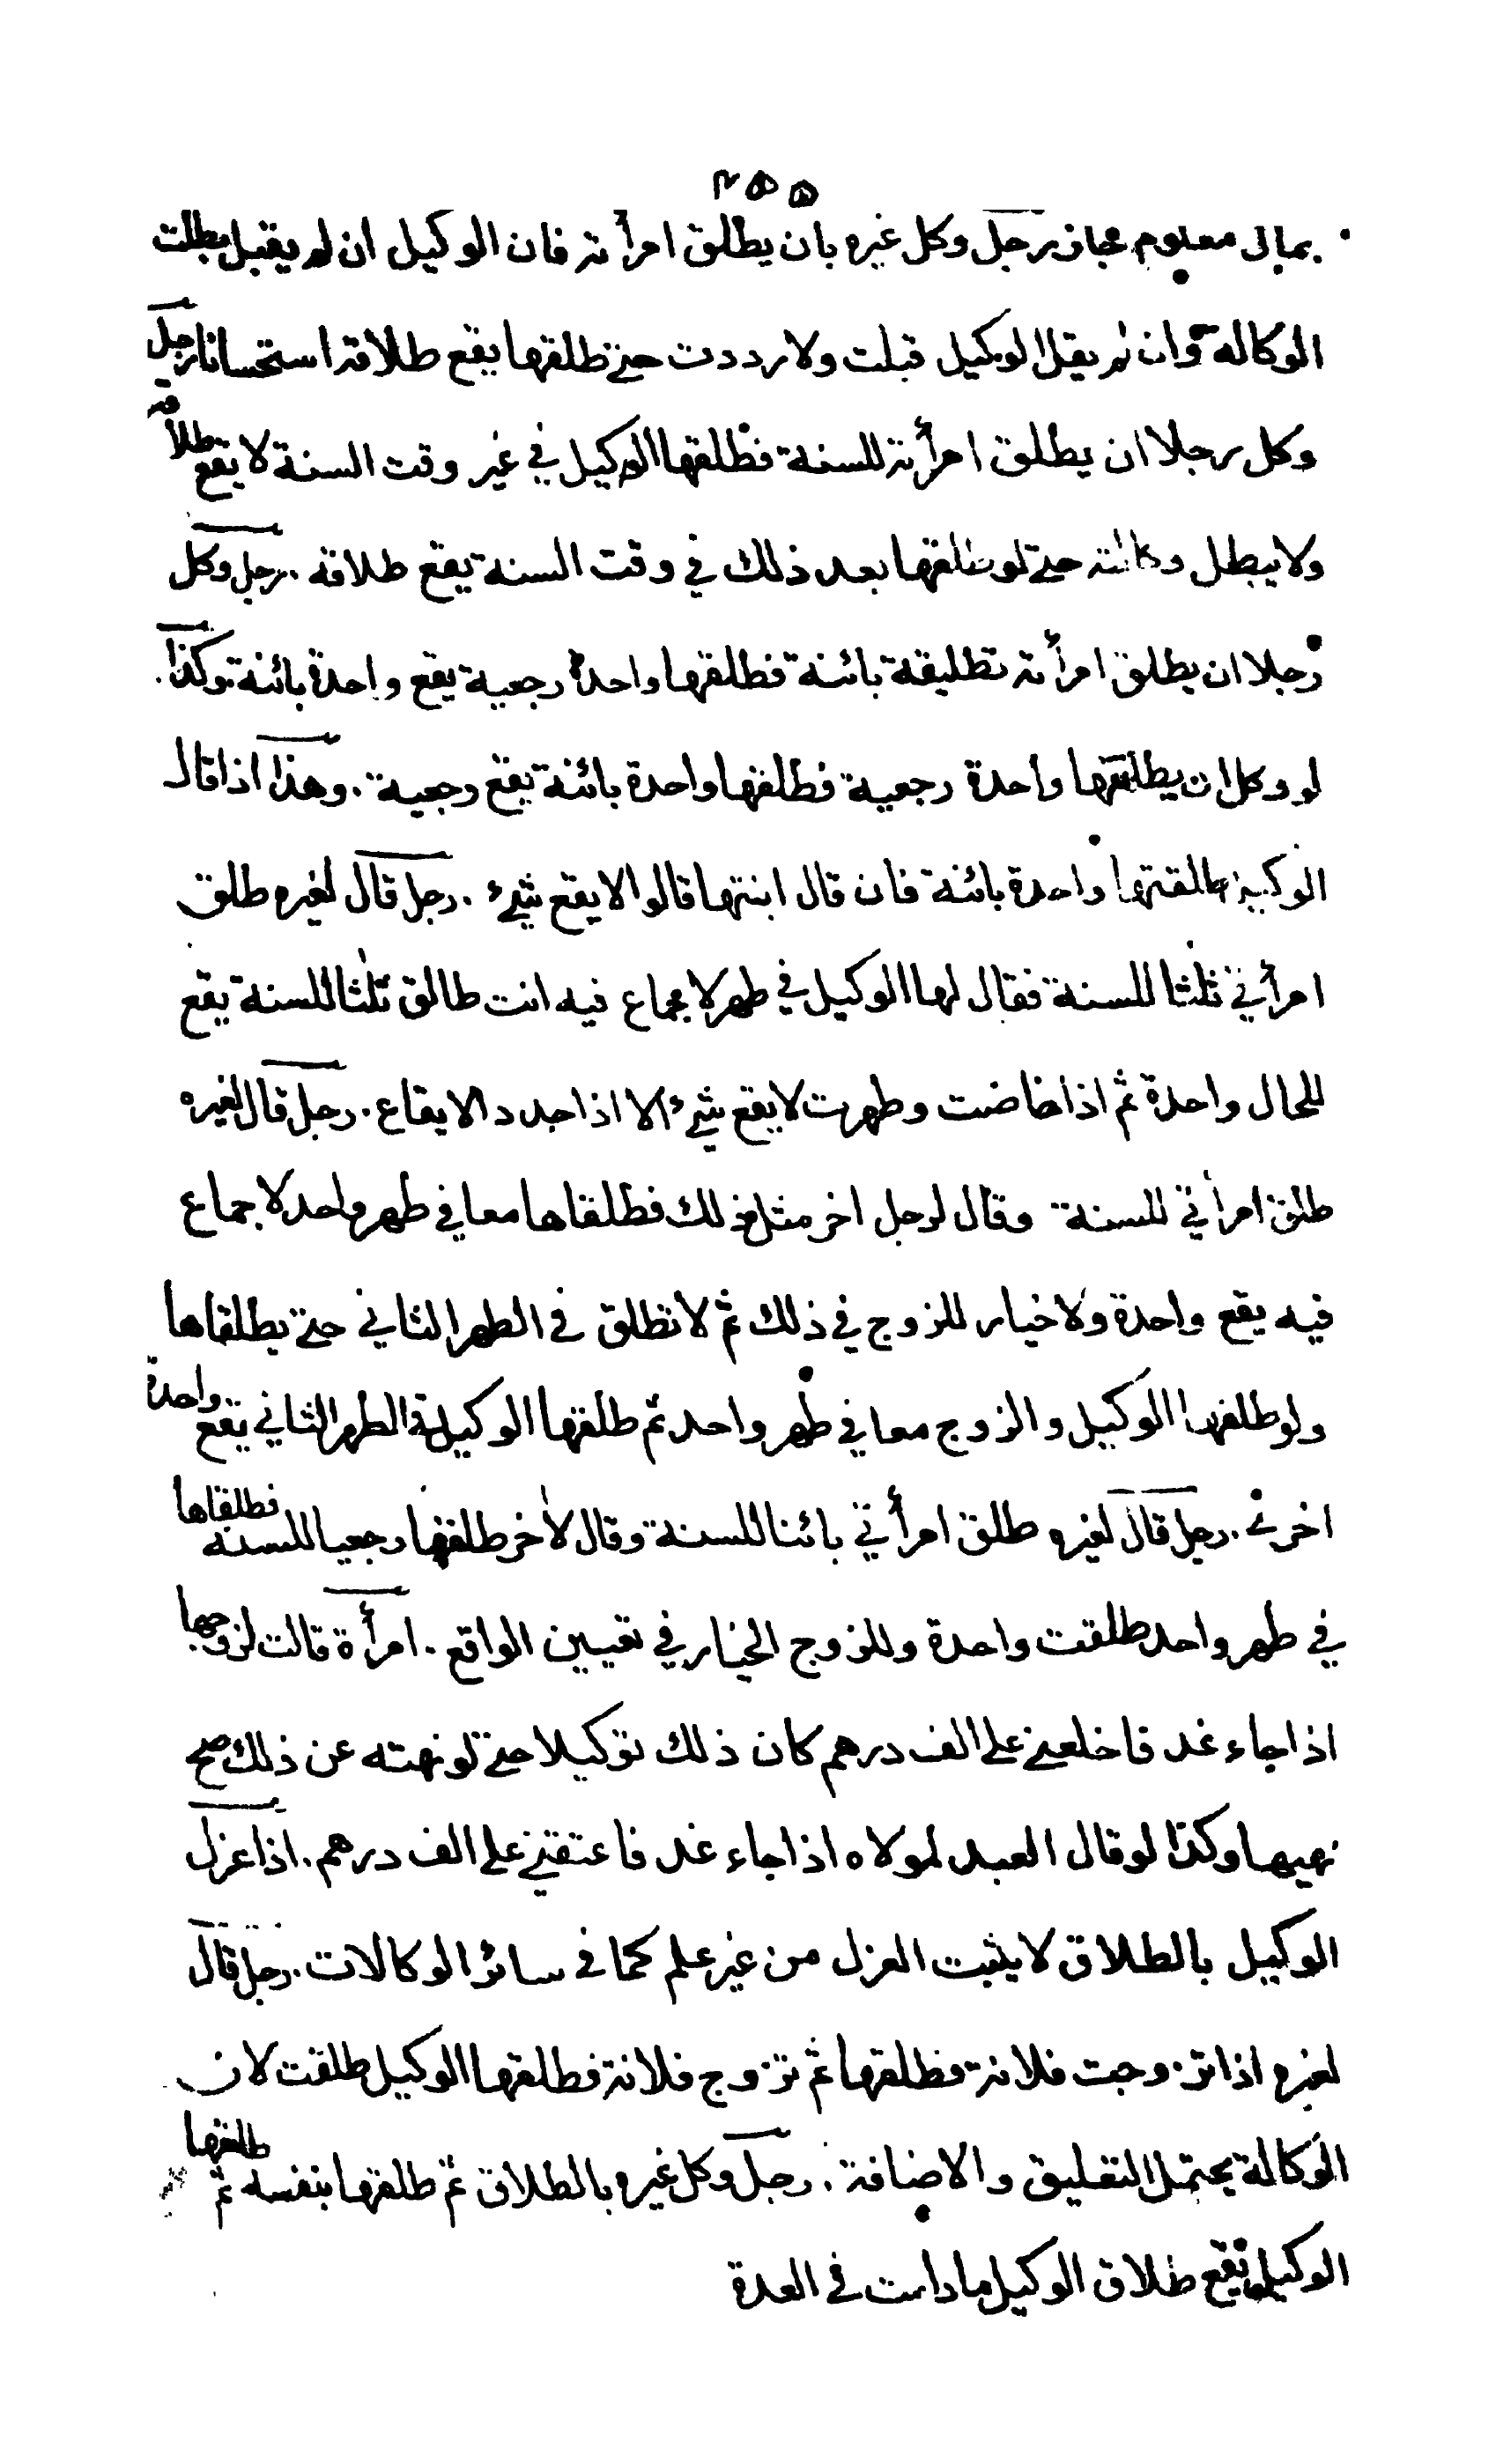 ٢٥٥
بمال معلوم مجاز رجل وكل غيره بان يطلق امرأته فان الوكيل ان لم يقبل بطلت
الوكالة وان لم يقل الوكيل قبلت ولا رددت حتى طلقها يقع طلاقه استحسانا رجل
وكل رجلا ان يطلق امرأته للسنة فطلقها الوكيل في غير وقت السنة لا يقع طلاقه
ولا يبطل وكالته حتى لو طلقها بعد ذلك في وقت السنة يقع طلاقه . رجل وكل
رجلا ان يطلق امرأته تطليقة بائنة فطلقها واحدة رجعية يقع واحدة بائنة وكذا .
لو وكل ان يطلقها واحدة رجعية فطلقها واحدة بائنة يقع رجعية . وهذا اذا قال
الوكيل طلقتها واحدة بائنة فان قال ابنتها قالوا لا يقع شيء . رجل قال لغيره طلق
امرأتي ثلثا للسنة فقال لها الوكيل في طهر لا جماع فيه انت طالق ثلثا للسنة يقع
للحال واحدة ثم اذا حاضت وطهرت لا يقع شيء الا اذا جدد الايقاع . رجل قال لغيره
طلق امرأتي للسنة وقال لرجل اخر مثل ذلك فطلقاها معا في طهر واحد لا جماع
فيه يقع واحدة ولا خيار للزوج في ذلك ثم لا تطلق في الطهر الثاني حتى يطلقاها
ولو طلقها الوكيل والزوج معا في طهر واحد ثم طلقها الوكيل في الطهر الثاني يقع واحدة
اخرى . رجل قال لغيره طلق امرأتي بائنا للسنة وقال لآخر طلقها رجعيا للسنة فطلقاها
في طهر واحد طلقت واحدة وللزوج الخيار في تعيين الواقع . امرأة قالت لزوجها
اذا جاء غد فاخلعني على الف درهم كان ذلك توكيلا حتى لو نهته عن ذلك صح
نهيها وكذا لو قال العبد لمولاه اذا جاء غد فاعتقني على الف درهم . اذا عزل
الوكيل بالطلاق لا يثبت العزل من غير علم كما في سائر الوكالات . رجل قال
لغيره اذا تزوجت فلانة فطلقها ثم تزوج فلانة فطلقها الوكيل طلقت لان
الوكالة يحتمل التعليق والاضافة . رجل وكل غيره بالطلاق ثم طلقها بنفسه ثم طلقها
الوكيل يقع طلاق الوكيل ما دامت في العدة